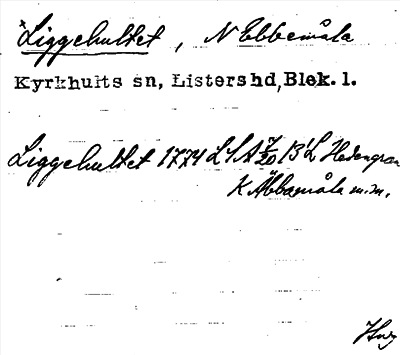 Liggehultet, N Ebbemåla
Kyrkhults sn, Listers hd, Blek. l.
Liggehultet 1774 LSA 7/20 B¹L Hedengran
K Äbbamåla m.m.